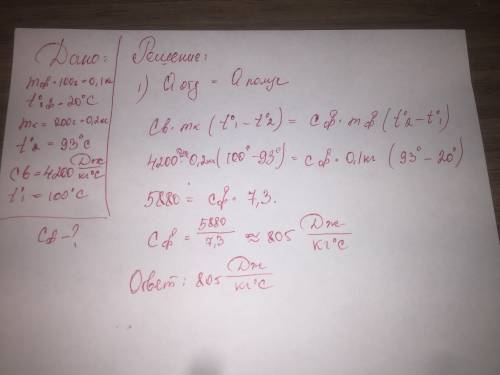 Дано:
mф = 100г = 0,1кг
t°1ф = 20°C
mк = 200г = 0,2кг
t°2 = 93°C
Cв = 4200 Дж/кг°C
t°1 = 100°C
Cф - ?
Решение:
1) Q отд = Q получ
Cв · mк (t°1 - t°2) = Cф · mф (t°2 - t°1)
4200 · 0,2кг (100° - 93°) = Cф · 0,1кг (93° - 20°)
5880 = Cф · 7,3.
Cф = 5880/7,3 ≈ 805 Дж/кг°C
Ответ: 805 Дж/кг°C